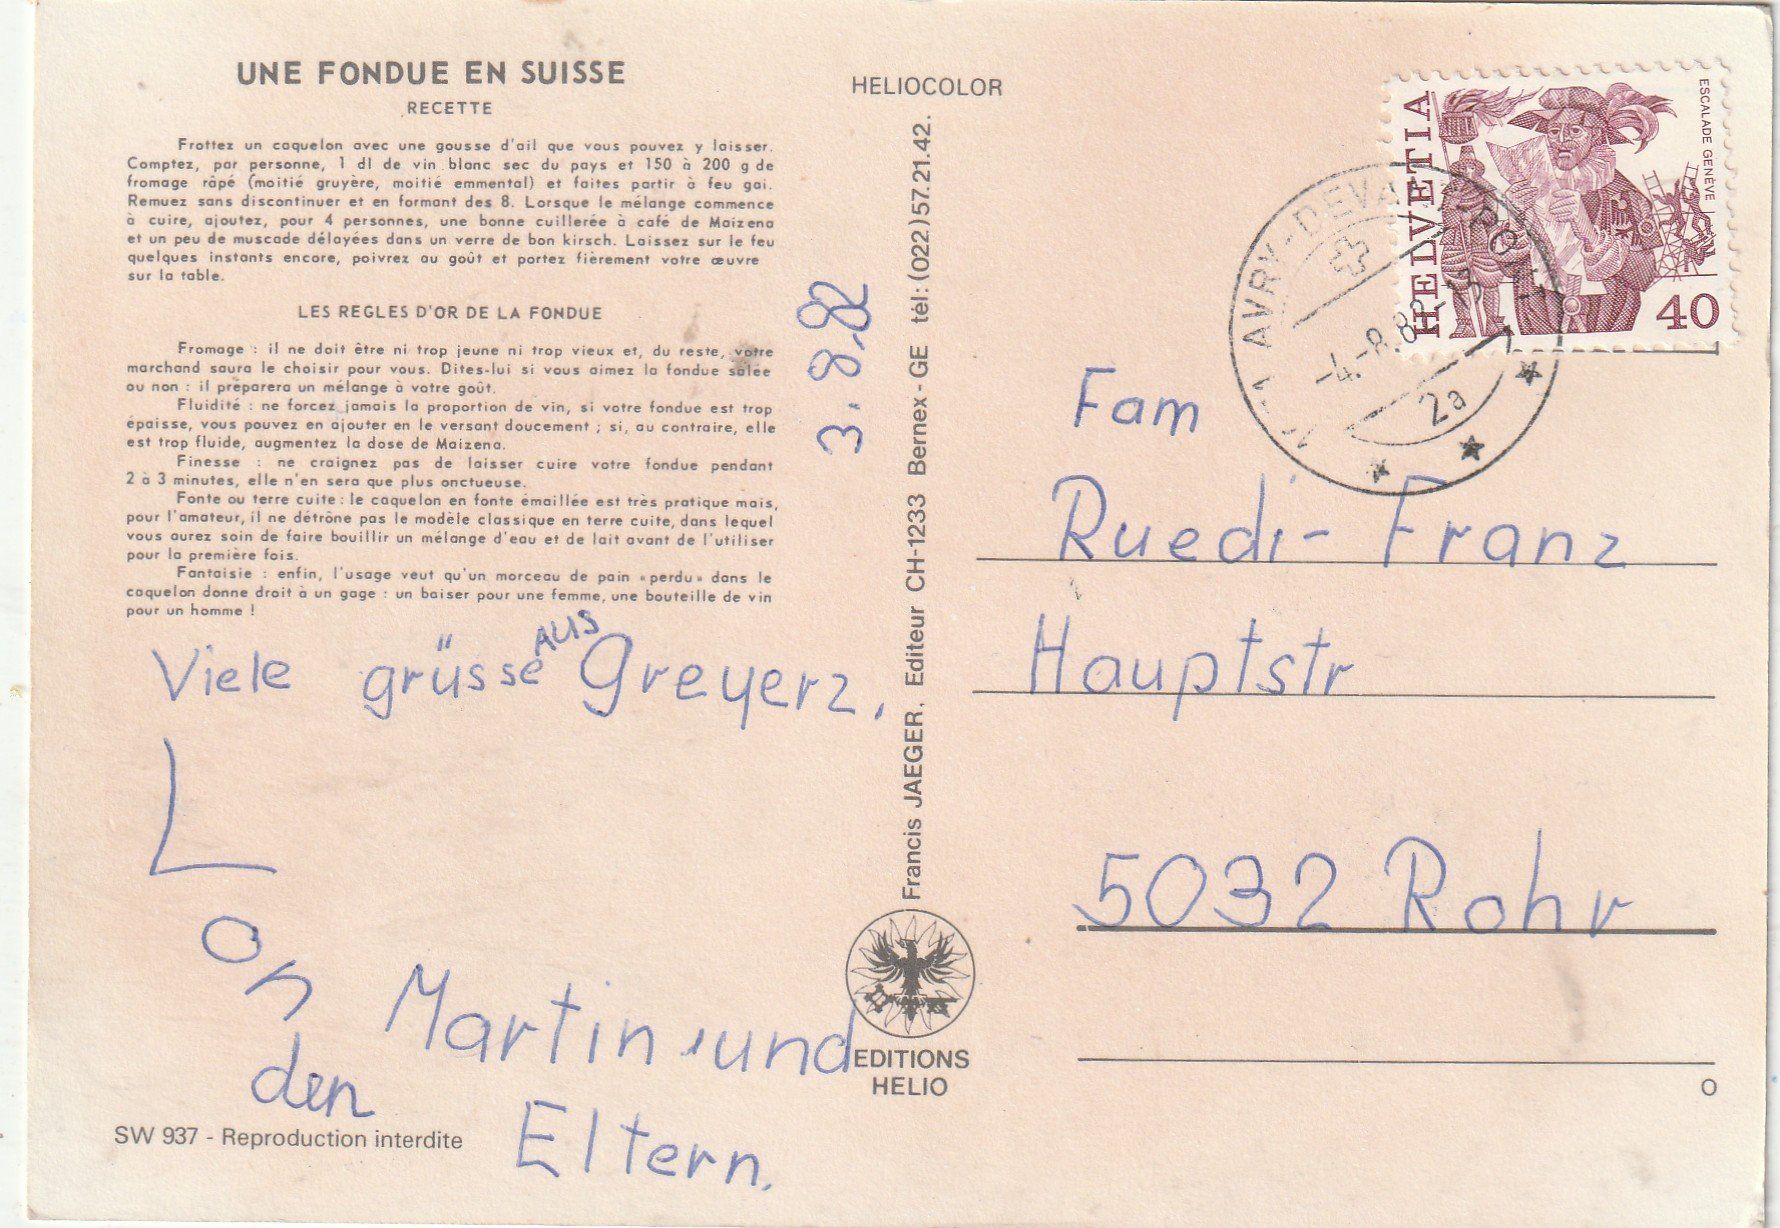 UNE FONDUE EN SUISSE
RECETTE
Frottez un caquelon avec une gousse d'ail que vous pouvez y laisser.
Comptez, par personne, 1 dl de vin blanc sec du pays et 150 à 200 g de
fromage râpé (moitié gruyère, moitié emmental) et faites partir à feu gai.
Remuez sans discontinuer et en formant des 8. Lorsque le mélange commence
à cuire, ajoutez, pour 4 personnes, une bonne cuillerée à café de Maizena
et un peu de muscade délayées dans un verre de bon kirsch. Laissez sur le feu
quelques instants encore, poivrez au goût et portez fièrement votre œuvre
sur la table.
LES REGLES D'OR DE LA FONDUE
Fromage : il ne doit être ni trop jeune ni trop vieux et, du reste, votre
marchand saura le choisir pour vous. Dites-lui si vous aimez la fondue salée
ou non : il préparera un mélange à votre goût.
Fluidité : ne forcez jamais la proportion de vin, si votre fondue est trop
épaisse, vous pouvez en ajouter en le versant doucement ; si, au contraire, elle
est trop fluide, augmentez la dose de Maizena.
Finesse : ne craignez pas de laisser cuire votre fondue pendant
2 à 3 minutes, elle n'en sera que plus onctueuse.
Fonte ou terre cuite : le caquelon en fonte émaillée est très pratique mais,
pour l'amateur, il ne détrône pas le modèle classique en terre cuite, dans lequel
vous aurez soin de faire bouillir un mélange d'eau et de lait avant de l'utiliser
pour la première fois.
Fantaisie : enfin, l'usage veut qu'un morceau de pain «perdu» dans le
caquelon donne droit à un gage : un baiser pour une femme, une bouteille de vin
pour un homme !
Viele grüsse AUS Greyerz,
Von
Martin und
den Eltern.
SW 937 - Reproduction interdite
3. 8. 82
HELIOCOLOR
Francis JAEGER, Editeur CH-1233 Bernex - GE tél: (022) 57.21.42.
EDITIONS
HELIO
HELVETIA
ESCALADE GENÈVE
40
AVRY-DEVA
-4.-8.8
2a
Fam
Ruedi- Franz
Hauptstr
5032 Rohr
O